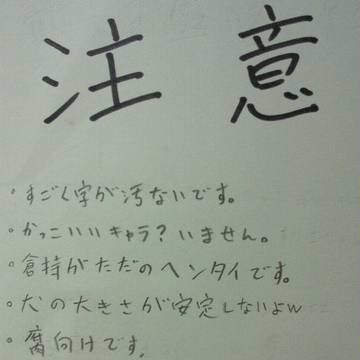 注意
・すごく字が汚ないです。
・かっこいいキャラ?いません。
・倉持がただのヘンタイです。
・犬の大きさが安定しないよw
・腐向けです.